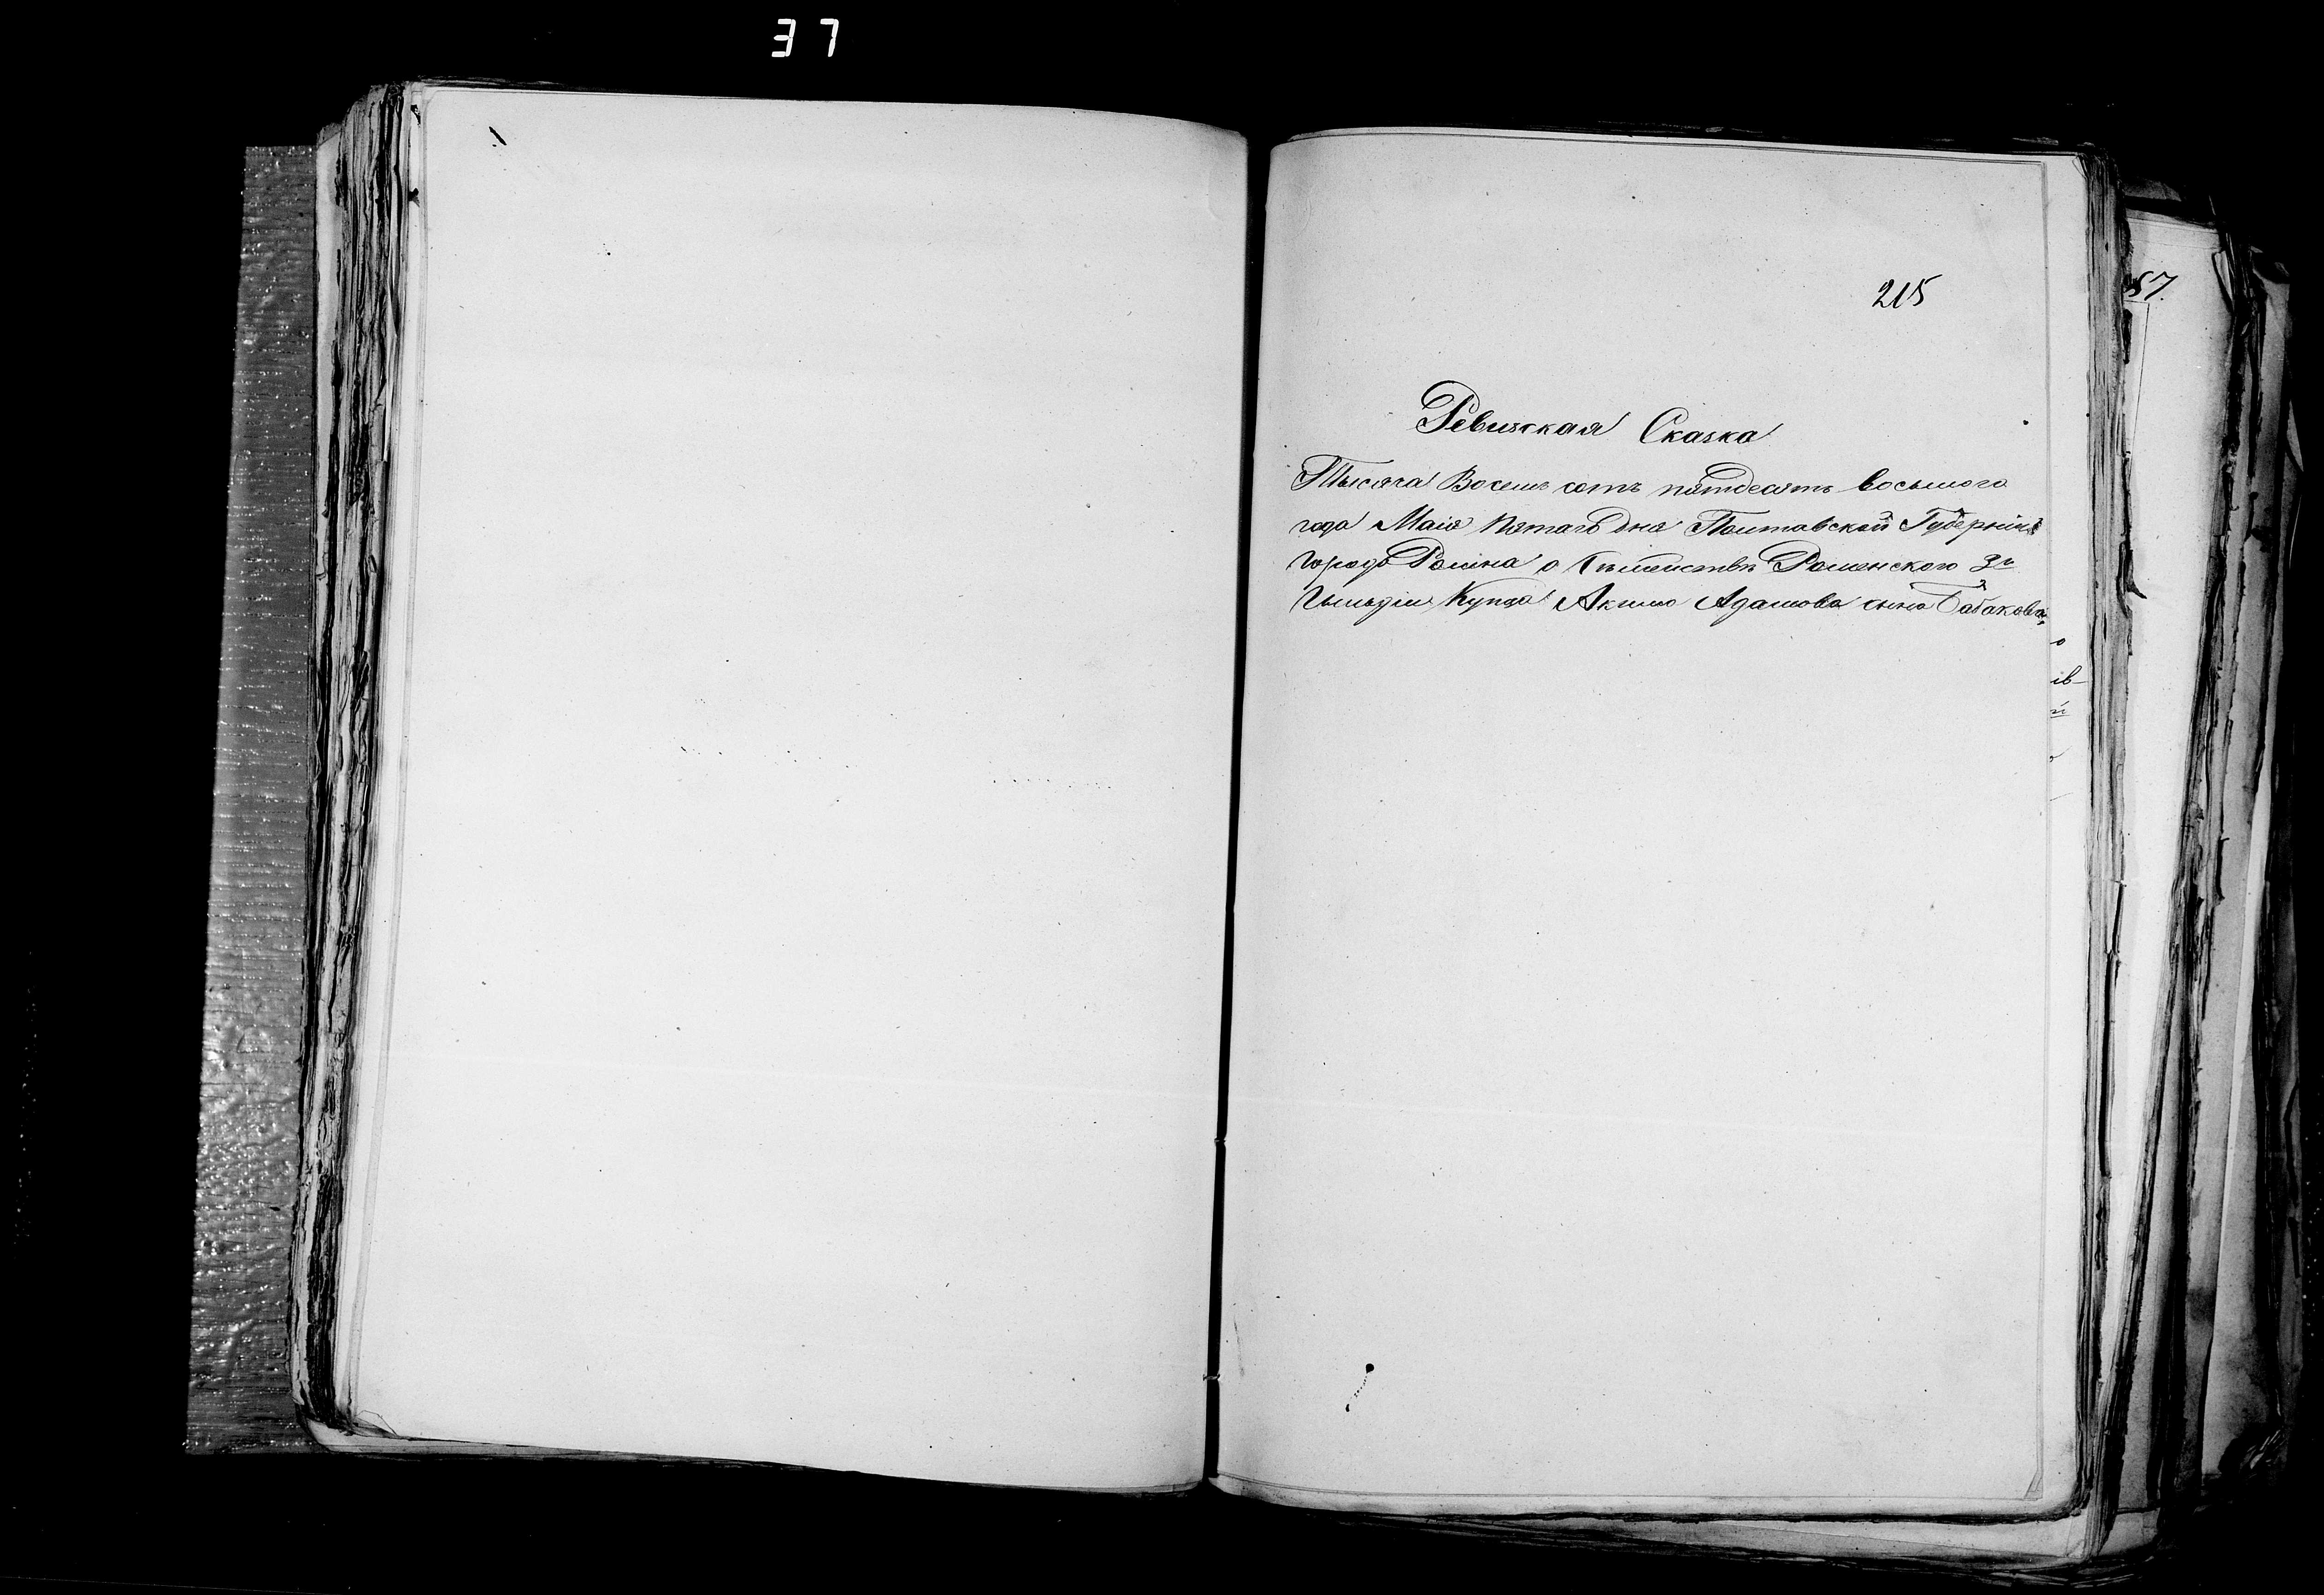 37
215
57.
Ревизская Сказка
Тысяча Восемь сотъ пятдесятъ восьмого
года Маія Пятаго дня Полтавской Губерніи
города Ромна о Семействѣ Роменского 3й
Гильдіи Купца Акима Адамова сына Бабакова,